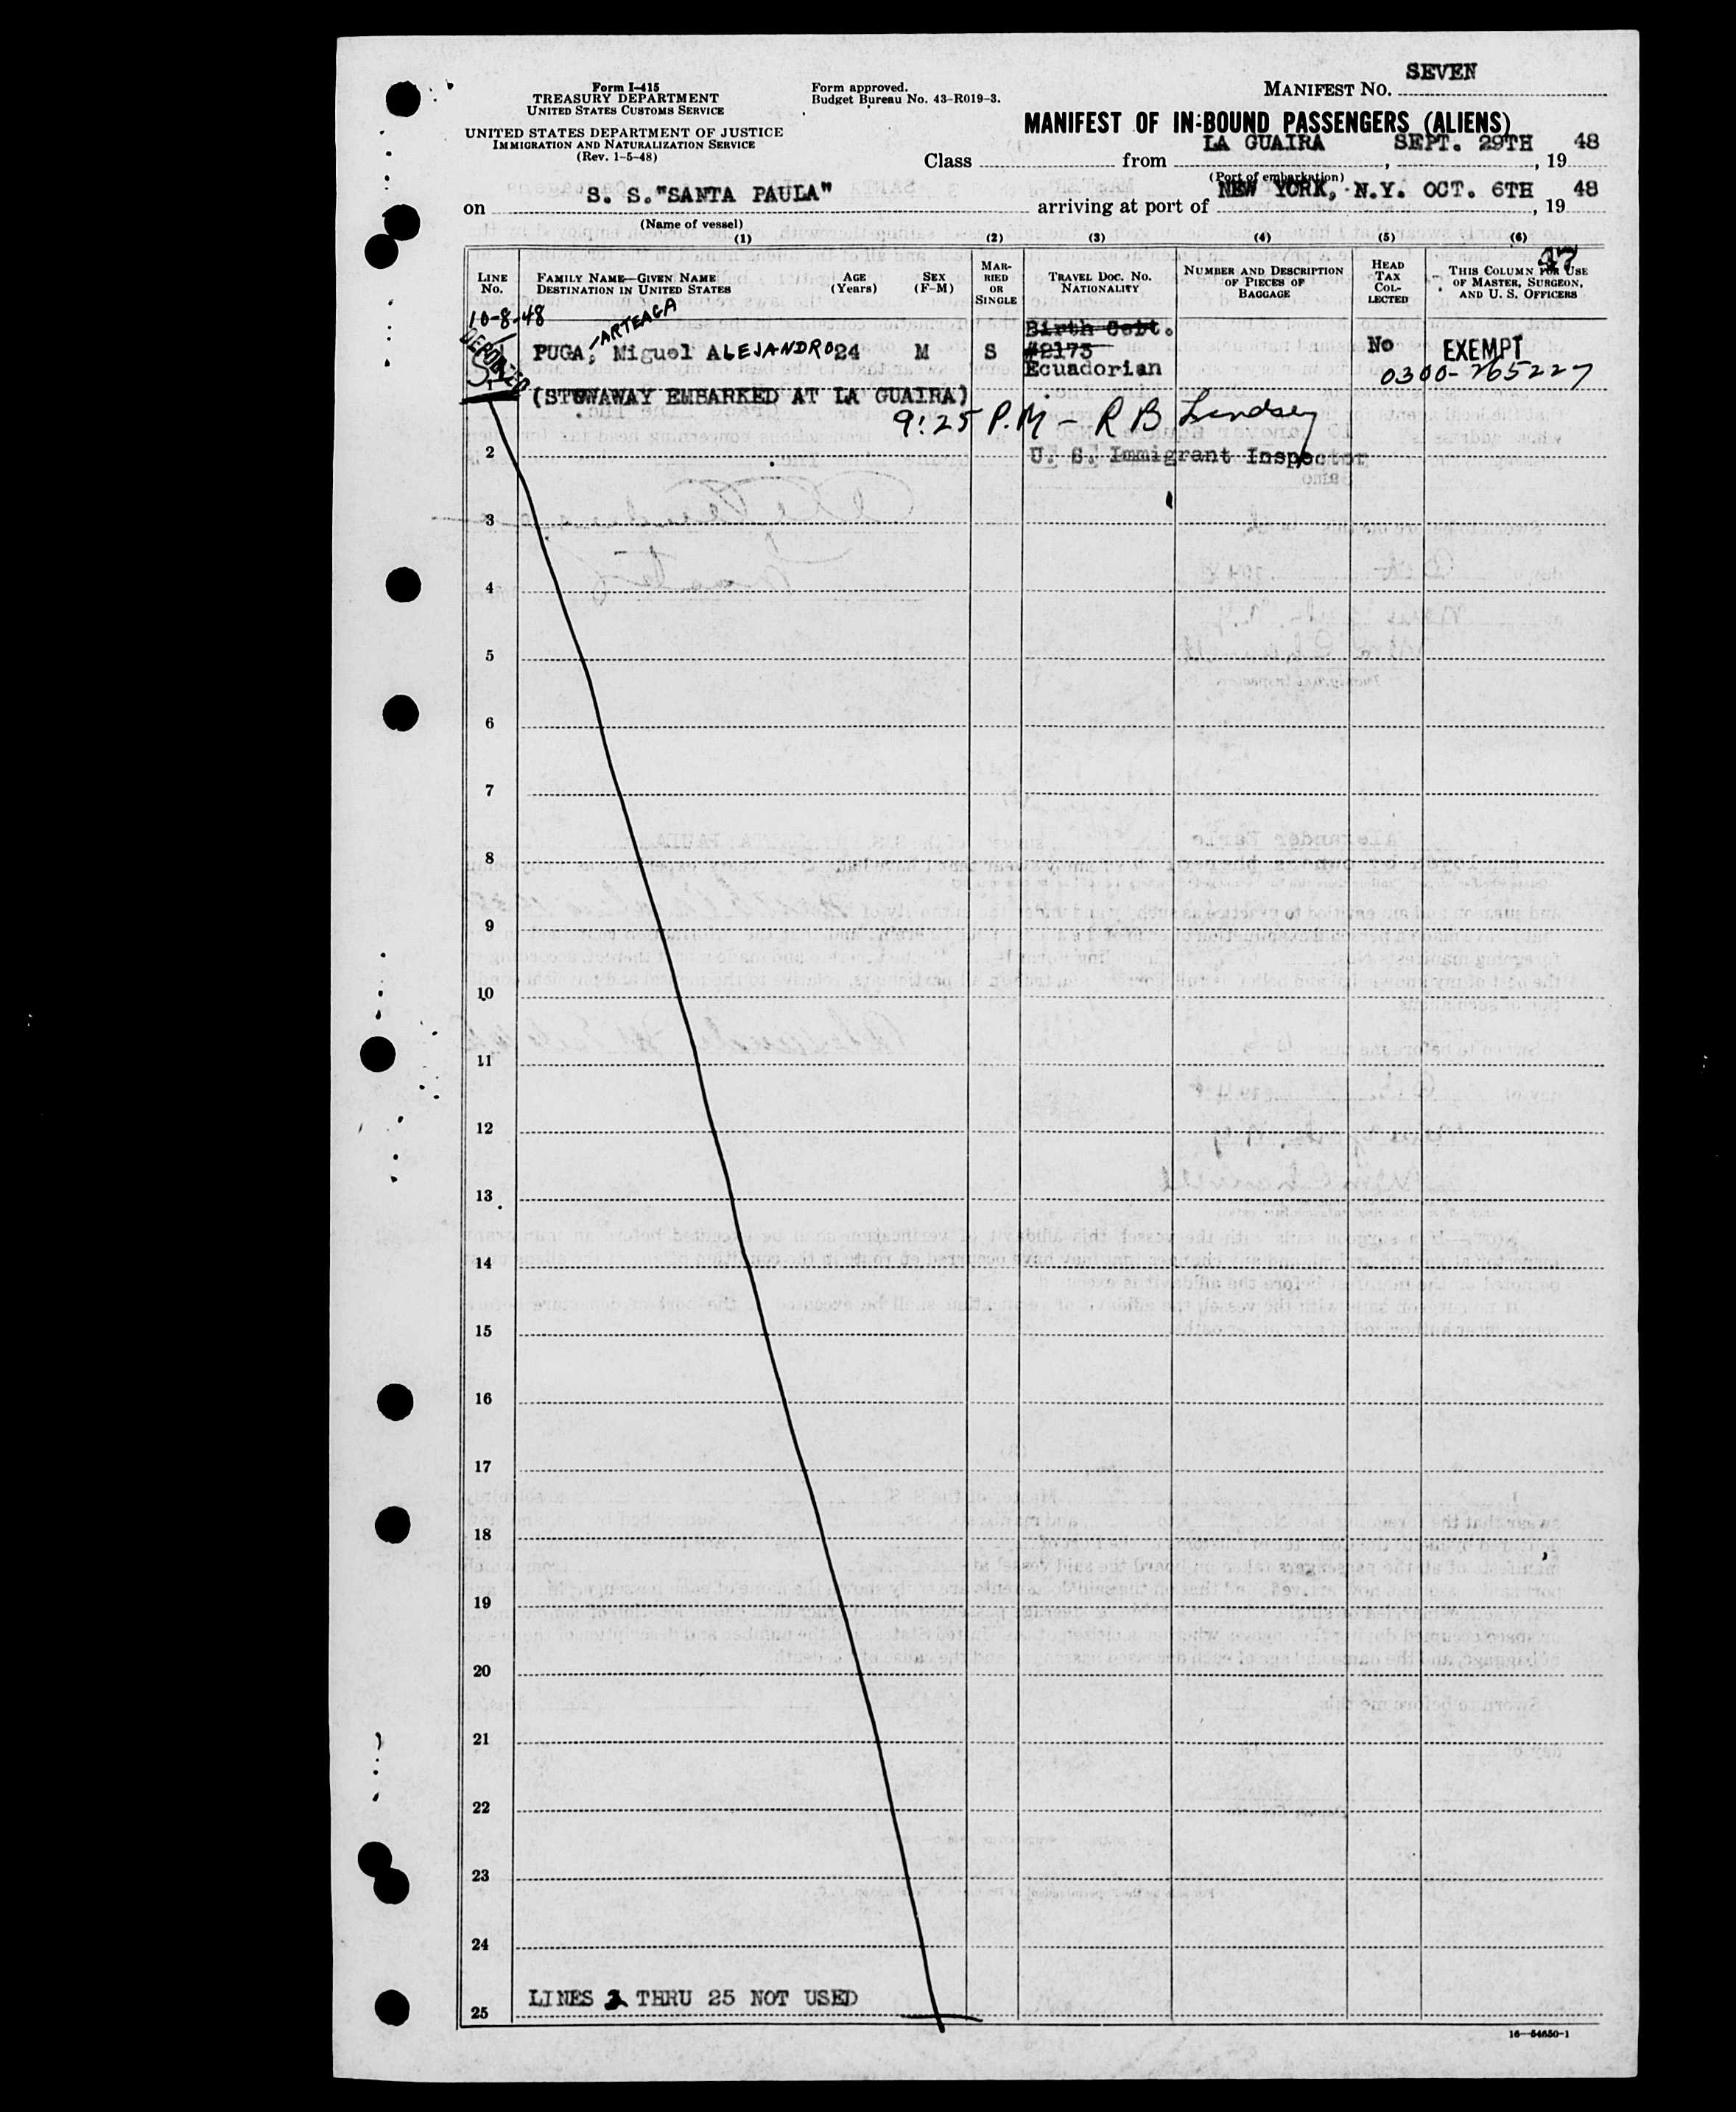 SEVEN
Form I-415
TREASURY DEPARTMENT
UNITED STATES CUSTOMS SERVICE
UNITED STATES DEPARTMENT OF JUSTICE
IMMIGRATION AND NATURALIZATION SERVICE
(Rev. 1-5-48)
Form approved.
Budget Bureau No. 43-R019-3.
MANIFEST NO.
MANIFEST OF IN-BOUND PASSENGERS (ALIENS)
Class from LA GUAIRA, SEPT. 29TH, 19 48
(Port of embarkation)
on S. S. "SANTA PAULA" arriving at port of NEW YORK, N.Y. OCT. 6TH, 19 48
(Name of vessel)
(1) (2) (3) (4) (5) (6)
47
LINE NO.
FAMILY NAME—GIVEN NAME
DESTINATION IN UNITED STATES
AGE (Years)
SEX (F-M)
MARRIED OR SINGLE
TRAVEL DOC. NO.
NATIONALITY
NUMBER AND DESCRIPTION OF PIECES OF BAGGAGE
HEAD TAX COLLECTED
THIS COLUMN FOR USE OF MASTER, SURGEON, AND U. S. OFFICERS
10-8-48
DEPORTED
-ARTEAGA
Birth Cert.
PUGA, Miguel ALEJANDRO 24 M S #2173 No EXEMPT
Ecuadorian 0300-265227
(STOWAWAY EMBARKED AT LA GUAIRA)
9:25 P.M - R B Lindsey
2 U. S. Immigrant Inspector
3
4
5
6
7
8
9
10
11
12
13
14
15
16
17
18
19
20
21
22
23
24
LINES 2 THRU 25 NOT USED
25
16—54650-1